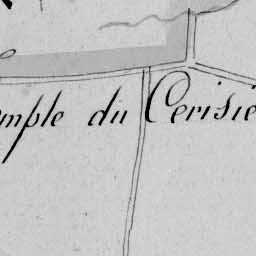 emple du Cerisie